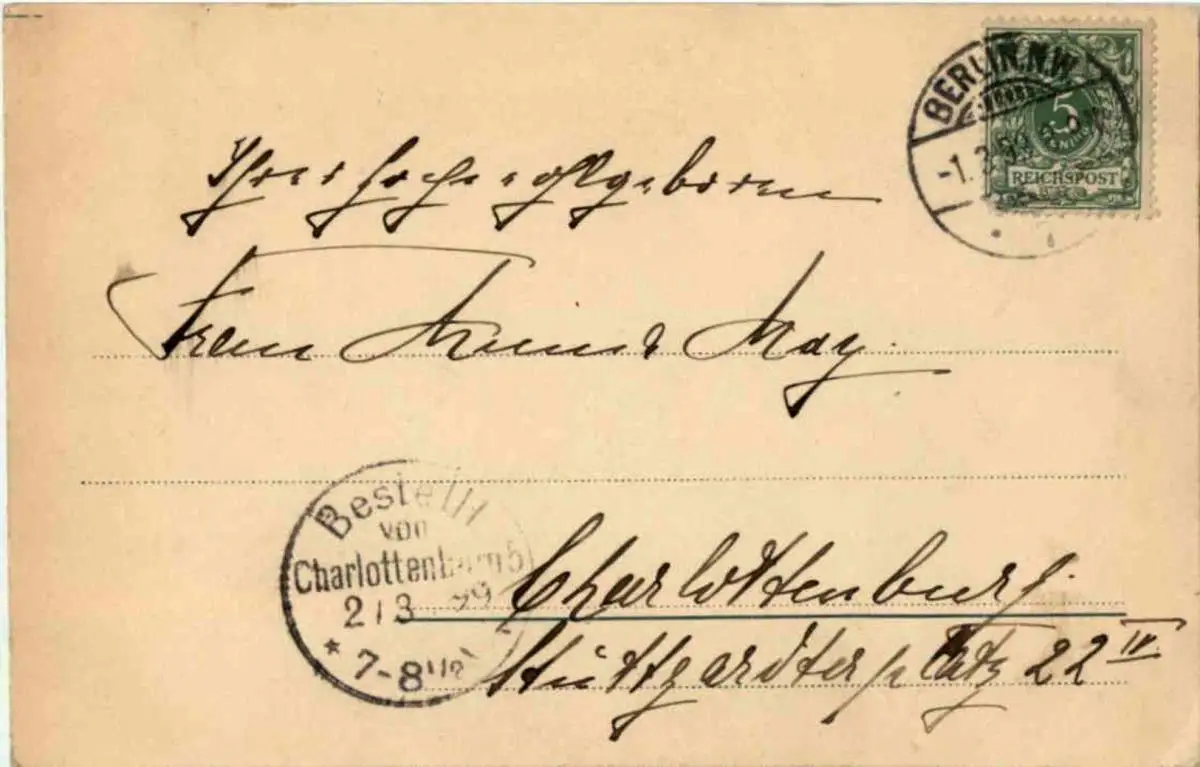 BERLIN. N.W.
-1.3.99. 8-9N.
5
PFENNIG
REICHSPOST
Ihrer Hochwohlgeboren
Frau
May.
Bestellt
von
Charlottenburg 5
2/3 99
* 7-8 1/2
Charlottenburg.
Stuttgardterplatz 22 IV.